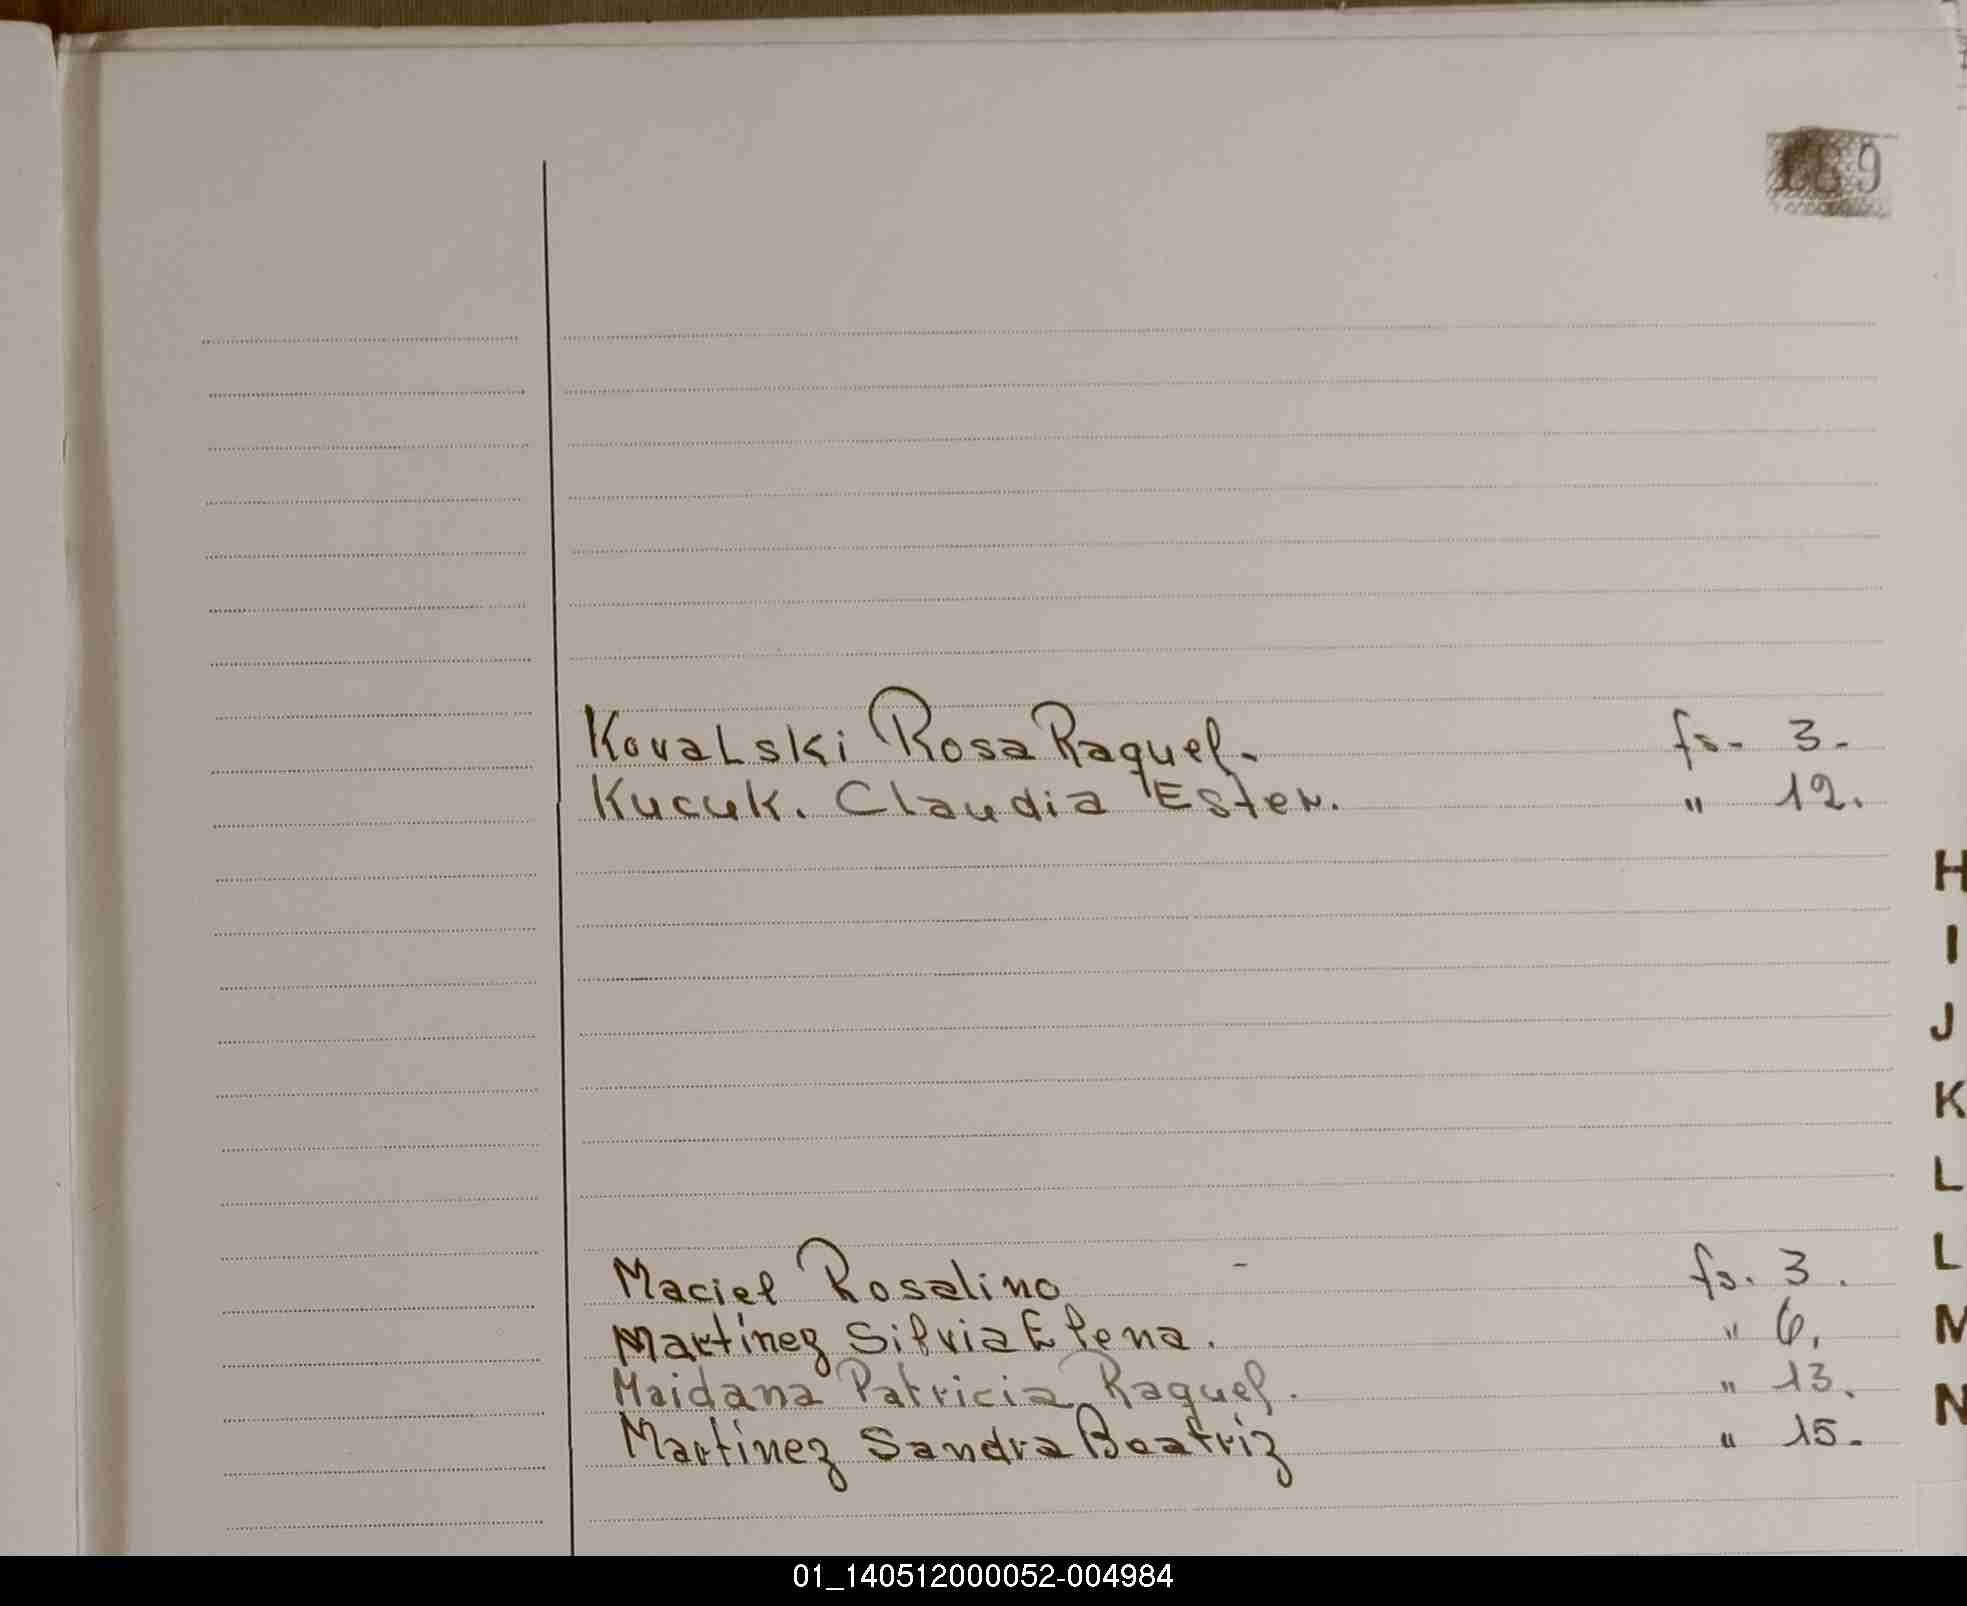 189
Kovalski Rosa Raquel. fs. 3.
Kucuk. Claudia Ester. " 12.
H
I
J
K
L
L
Maciel Rosalino - fs. 3.
M
Martínez Silvia Elena. " 6.
Maidana Patricia Raquel. " 13.
N
Martínez Sandra Beatriz " 15.
01_140512000052-004984